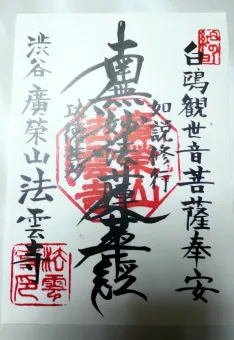 白鴎観世音菩薩奉安
如説修行
南無妙法蓮華経
功徳甚多
渋谷 廣榮山 法雲寺
法雲寺印